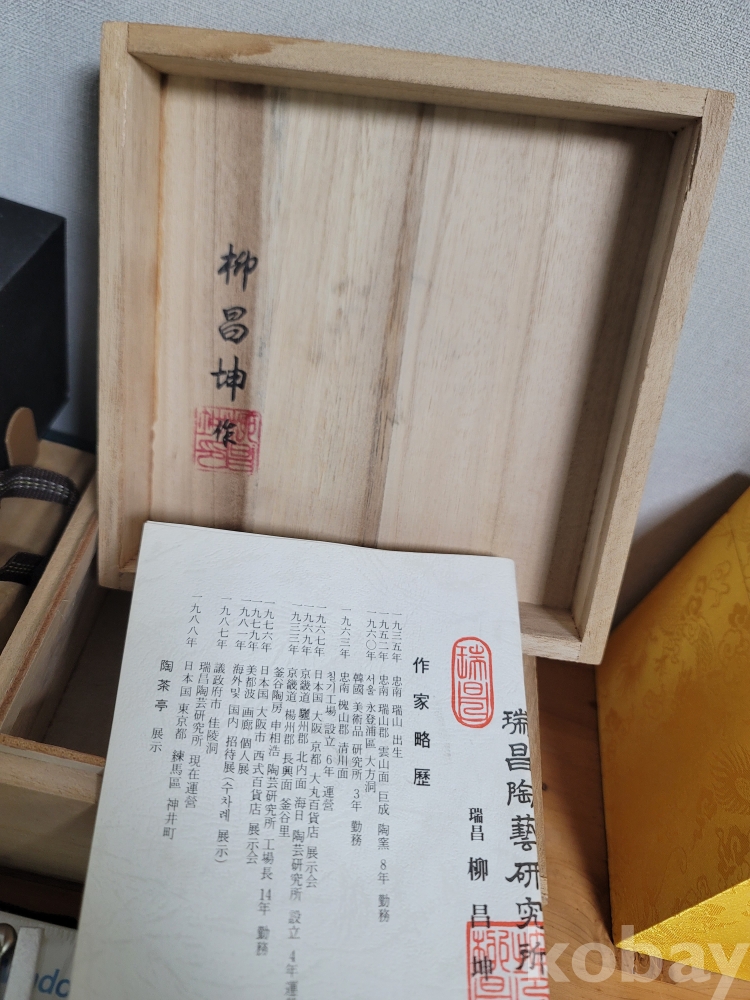 柳昌坤
作
瑞昌
瑞昌陶藝硏究所
瑞昌 柳昌坤
作家略歷
一九三五年 忠南 瑞山 出生
一九五二年 忠南 瑞山郡 雲山面 巨成 陶窯 8年 勤務
一九六〇年 서울 永登浦區 大方洞
韓國 美術品 硏究所 3年 勤務
一九六三年 忠南 槐山郡 清川面
칠기工場 設立 6年 運營
一九六七年 日本国 大阪 京都 大丸百貨店 展示会
一九六九年 京畿道 驪州郡 北内面 海日 陶芸研究所 設立 4年運
一九三三年 京畿道 楊州郡 長興面 釜谷里
釜谷陶房 申相浩 陶芸研究所 工場長 14年 勤務
一九七六年 日本国 大阪市 西式百貨店 展示会
一九七九年 美都波 画廊 個人展
一九八一年 海外및 国内 招待展(수차례 展示)
一九八七年 議政府市 佳陵洞
瑞昌陶芸研究所 現在運営
一九八八年 日本国 東京都 練馬區 神井町
陶茶亭 展示
kobay